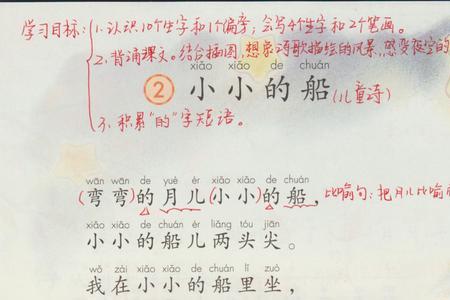 学习目标:1.认识10个生字和1个偏旁;会写4个生字和2个笔画。
2.背诵课文。结合插图,想象诗歌描绘的风景,感受夜空的
xiǎo xiǎo de chuán
2 小小的船(儿童诗)
3.积累"的"字短语。
wān wān de yuè ér xiǎo xiǎo de chuán
(弯弯)的月儿(小小)的船,比喻句:把月儿比喻
xiǎo xiǎo de chuán ér liǎng tóu jiān
小小的船儿两头尖。
wǒ zài xiǎo xiǎo de chuán lǐ zuò
我在小小的船里坐,